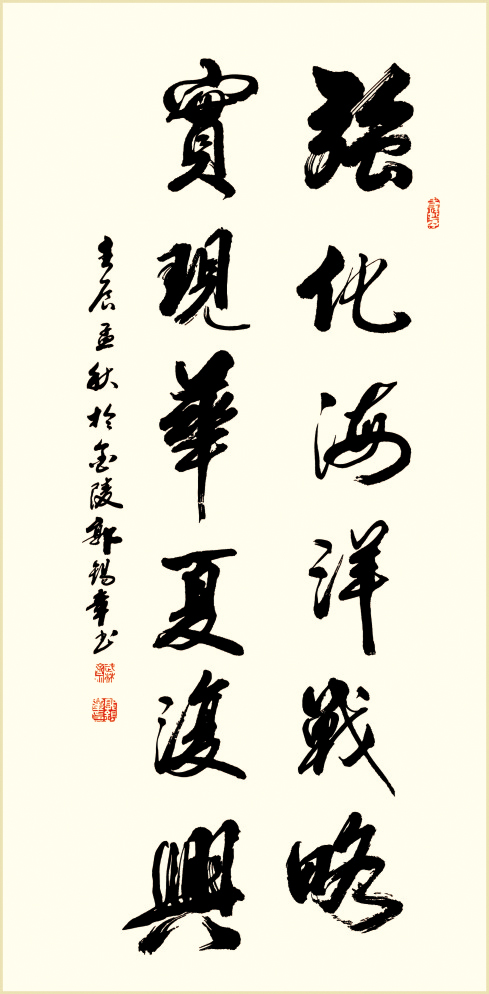 強化海洋戰略
實現華夏復興
壬辰孟秋於金陵郭錫章書